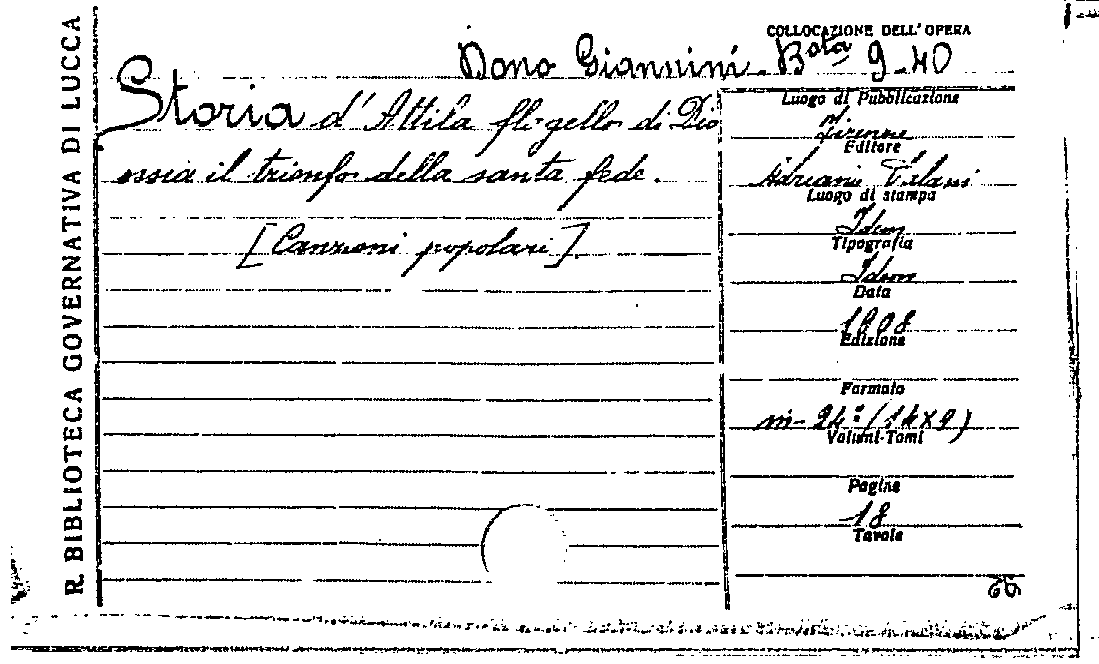 R. BIBLIOTECA GOVERNATIVA DI LUCCA
COLLOCAZIONE DELL'OPERA
Dono Giannini Bta 9-40
Storia d'Attila flagello di Dio
ossia il trionfo della santa fede.
[Canzoni popolari].
Luogo di Pubblicazione
Firenze
Editore
Adriano Salani
Luogo di stampa
Idem
Tipografia
Idem
Data
1908
Edizione
Formato
in-24º (14x9)
Volumi-Tomi
Pagine
18
Tavole